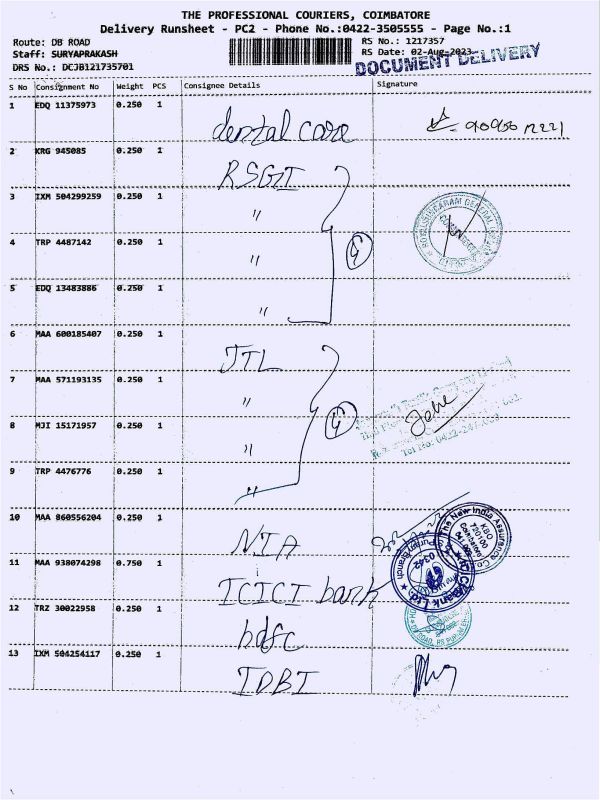 THE PROFESSIONAL COURIERS, COIMBATORE
Delivery Runsheet - PC2 - Phone No.:0422-3505555 - Page No.:1
Route: DB ROAD
Staff: SURYAPRAKASH
DRS No.: DCJB121735701
RS No.: 1217357
RS Date: 02-Aug-2023
DOCUMENT DELIVERY
S No Consignment No Weight PCS Consignee Details Signature
1 EDQ 11375973 0.250 1 dental care
2 KRG 945085 0.250 1 RSGI
3 IXM 504299259 0.250 1 "
4 TRP 4487142 0.250 1 "
5 EDQ 13483886 0.250 1 "
6 MAA 600185407 0.250 1 JTL
7 MAA 571193135 0.250 1 "
8 MJI 15171957 0.250 1 "
9 TRP 4476776 0.250 1 "
10 MAA 860556204 0.250 1 NIA
The New India Assurance Co
KBO
720100
Coimbatore
11 MAA 938074298 0.750 1 ICICI bank
ICICI Bank Ltd.
0342
12 TRZ 30022958 0.250 1 hdfc
13 IXM 504254117 0.250 1 IDBI